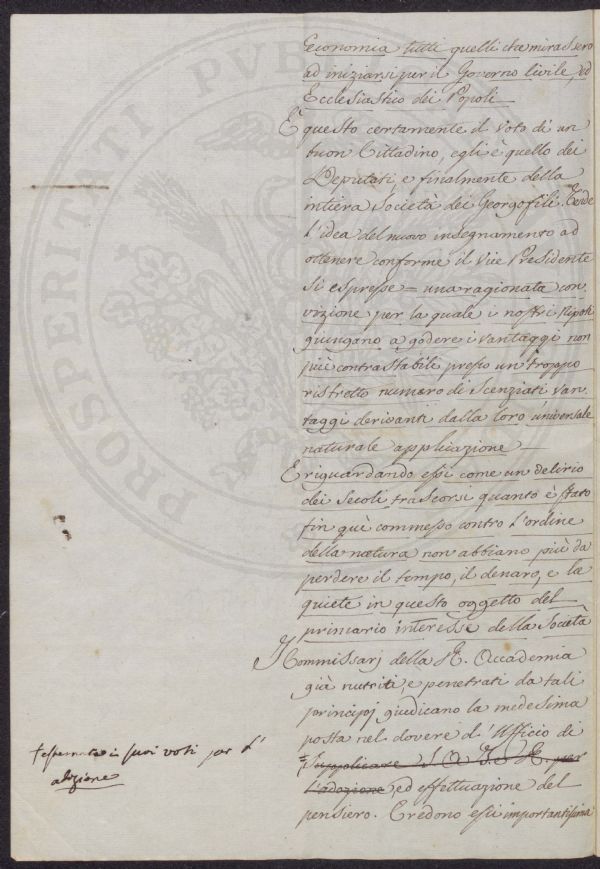 Economia tutti quelli che mirassero
ad iniziarsi per il Governo Civile, ed
Ecclesiastico dei Popoli
E questo certamente il Voto di un
buon Cittadino, egli è quello dei
Deputati, e finalmente della
intiera Società dei Georgofili. Tende
l'idea del nuovo insegnamento ad
ottenere conforme il Vice Presidente
si espresse = una ragionata con
vizione per la quale i nostri Nipoti
giungano a godere i vantaggi non
più contrastabili presso un troppo
ristretto numero di Scenziati van
taggi derivanti dalla loro universale
naturale applicazione
E riguardando essi come un delirio
dei Secoli trascorsi quanto è stato
fin quì commesso contro l'ordine
della natura non abbiano più da
perdere il tempo, il denaro, e la
quiete in questo oggetto del
primario interesse della Società
I Commissarj della R. Accademia
già nutriti, e penetrati da tali
principj giudicano la medesima
posta nel dovere d'Ufficio di
= Supplicare S. A. I. e R. per
l'adozione, ed effettuazione del
pensiero. Credono essi importantissima
i suoi voti per l'
adozione
PROSPERITATI PVBLI